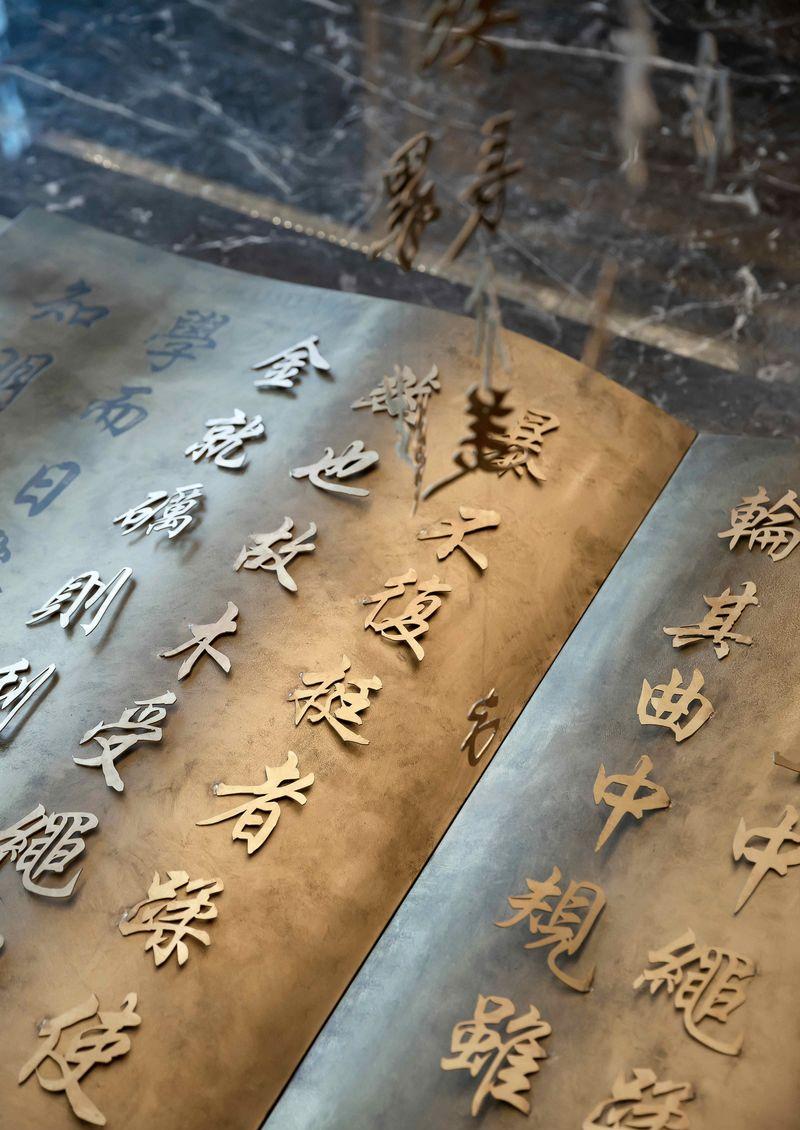 中繩
輪其曲中規雖
暴不復挺者使
也故木受繩
金就礪則利
學而日
知明